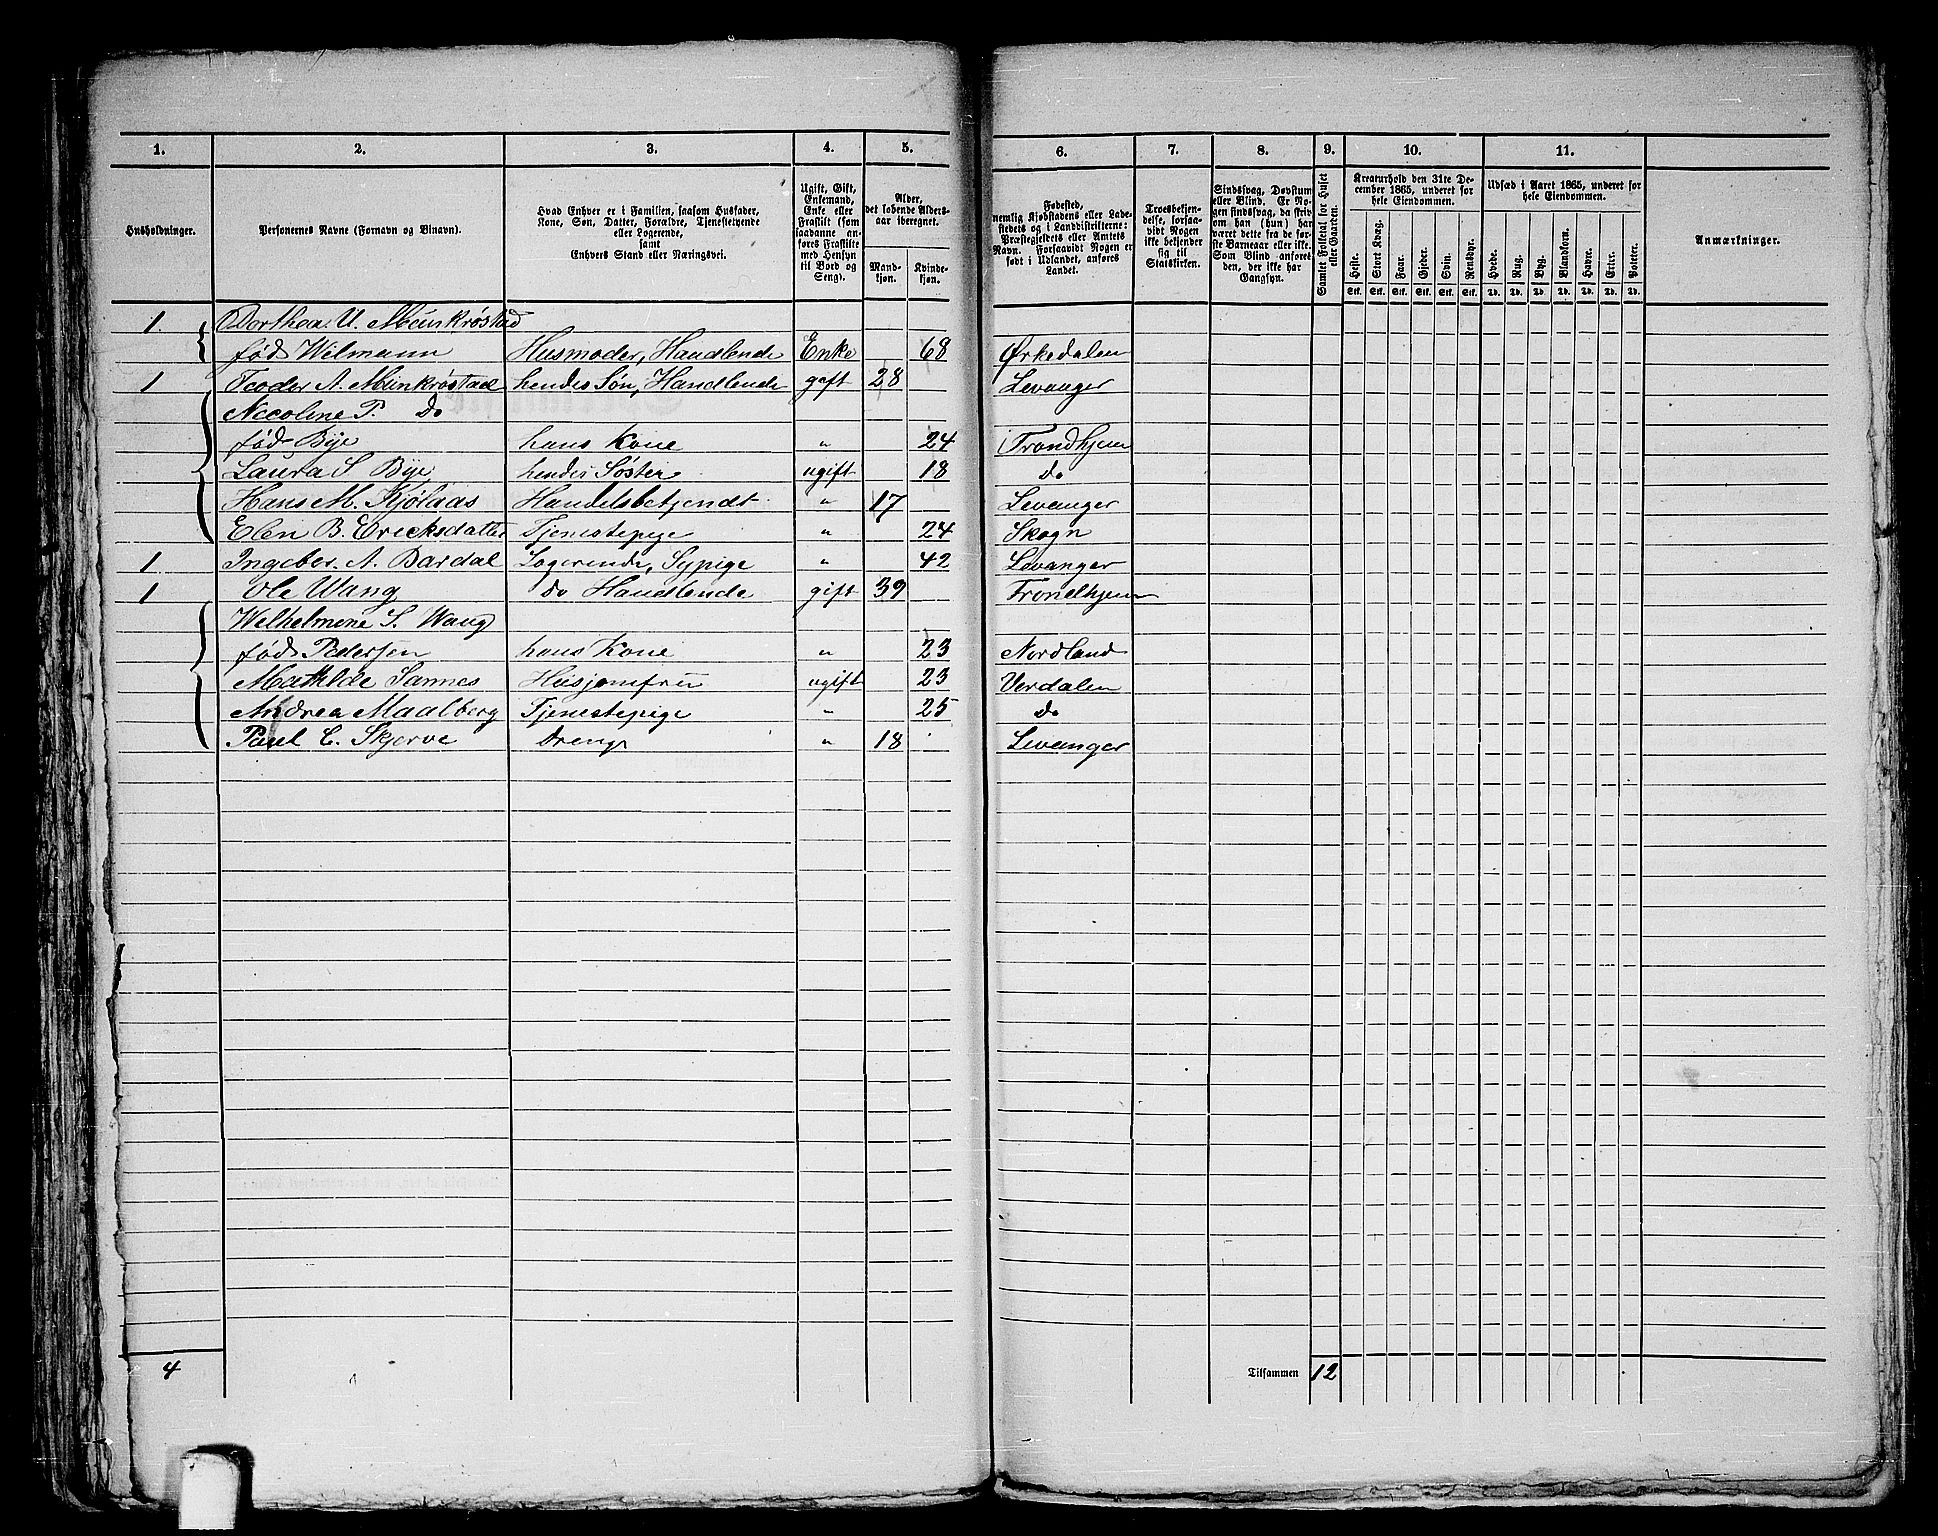 1. 2. 3. 4. 5. 6. 7. 8. 9. 10. 11.
Husholdninger.
Personernes Navne (Fornavn og Binavn).
Hvad Enhver er i Familien, saasom Husfader,
Kone, Søn, Datter, Forældre, Tjenestetyende
eller Logerende,
samt
Enhvers Stand eller Næringsvei.
Ugift, Gift,
Enkemand,
Enke eller
Fraskilt (som
saadanne an-
føres Fraskilte
med Hensyn
til Bord og
Seng).
Alder,
det løbende Alders-
aar iberegnet.
Mand-
kjøn.
Kvinde-
kjøn.
Fødested,
nemlig Kjøbstadens eller Lade-
stedets og i Landdistrikterne:
Præstegjeldets eller Amtets
Navn. Forsaavidt Nogen er
født i Udlandet, anføres
Landet.
Troesbekjen-
delse, forsaa-
vidt Nogen
ikke bekjender
sig til
Statskirken.
Sindssvag, Døvstum
eller Blind. Er No-
gen sindssvag, da skriv
om han (hun) har
været dette fra de før-
ste Barneaar eller ikke.
Som Blind anføres
den, der ikke har
Gangsyn.
Samlet Folketal for Huset
eller Gaarden.
Kreaturhold den 31te De-
cember 1865, underet for
hele Eiendommen.
Heste. Stort Kvæg. Faar. Gjeder. Svin. Rensdyr.
Stk. Stk. Stk. Stk. Stk. Stk.
Udsæd i Aaret 1865, underet for
hele Eiendommen.
Hvede. Rug. Byg. Blandkorn. Havre. Erter. Poteter.
Td. Td. Td. Td. Td. Td. Td.
Anmærkninger.
1. Dorthea U. Munkrøstad
fød Wilmann Husmoder, Handlende Enke 68 Ørkedalen
1 Teodor A. Munkrøstad hendes Søn, Handlende gift 28 Levanger
Nicoline P. do
fød Bye hans Kone " 24 Trondhjem
Laura S. Bye hendes Søster ugift 18 do
Hans M. Kjølaas Handelsbetjendt " 17 Levanger
Elen B. Ericksdatter Tjenestepige " 24 Skogn
1 Ingebor. A. Bardal Logerende, Sypige " 42 Levanger
1 Ole Wang do Handlende gift 39 Trondhjem
Welhelmine S. Wang
fød Pedersen hans Kone " 23 Nordland
Mathilde Sannes Husjomfru ugift 23 Verdalen
Andrea Maalberg Tjenestepige " 25 do
Paul C. Skjerve Dreng " 18 Levanger
4
Tilsammen 12